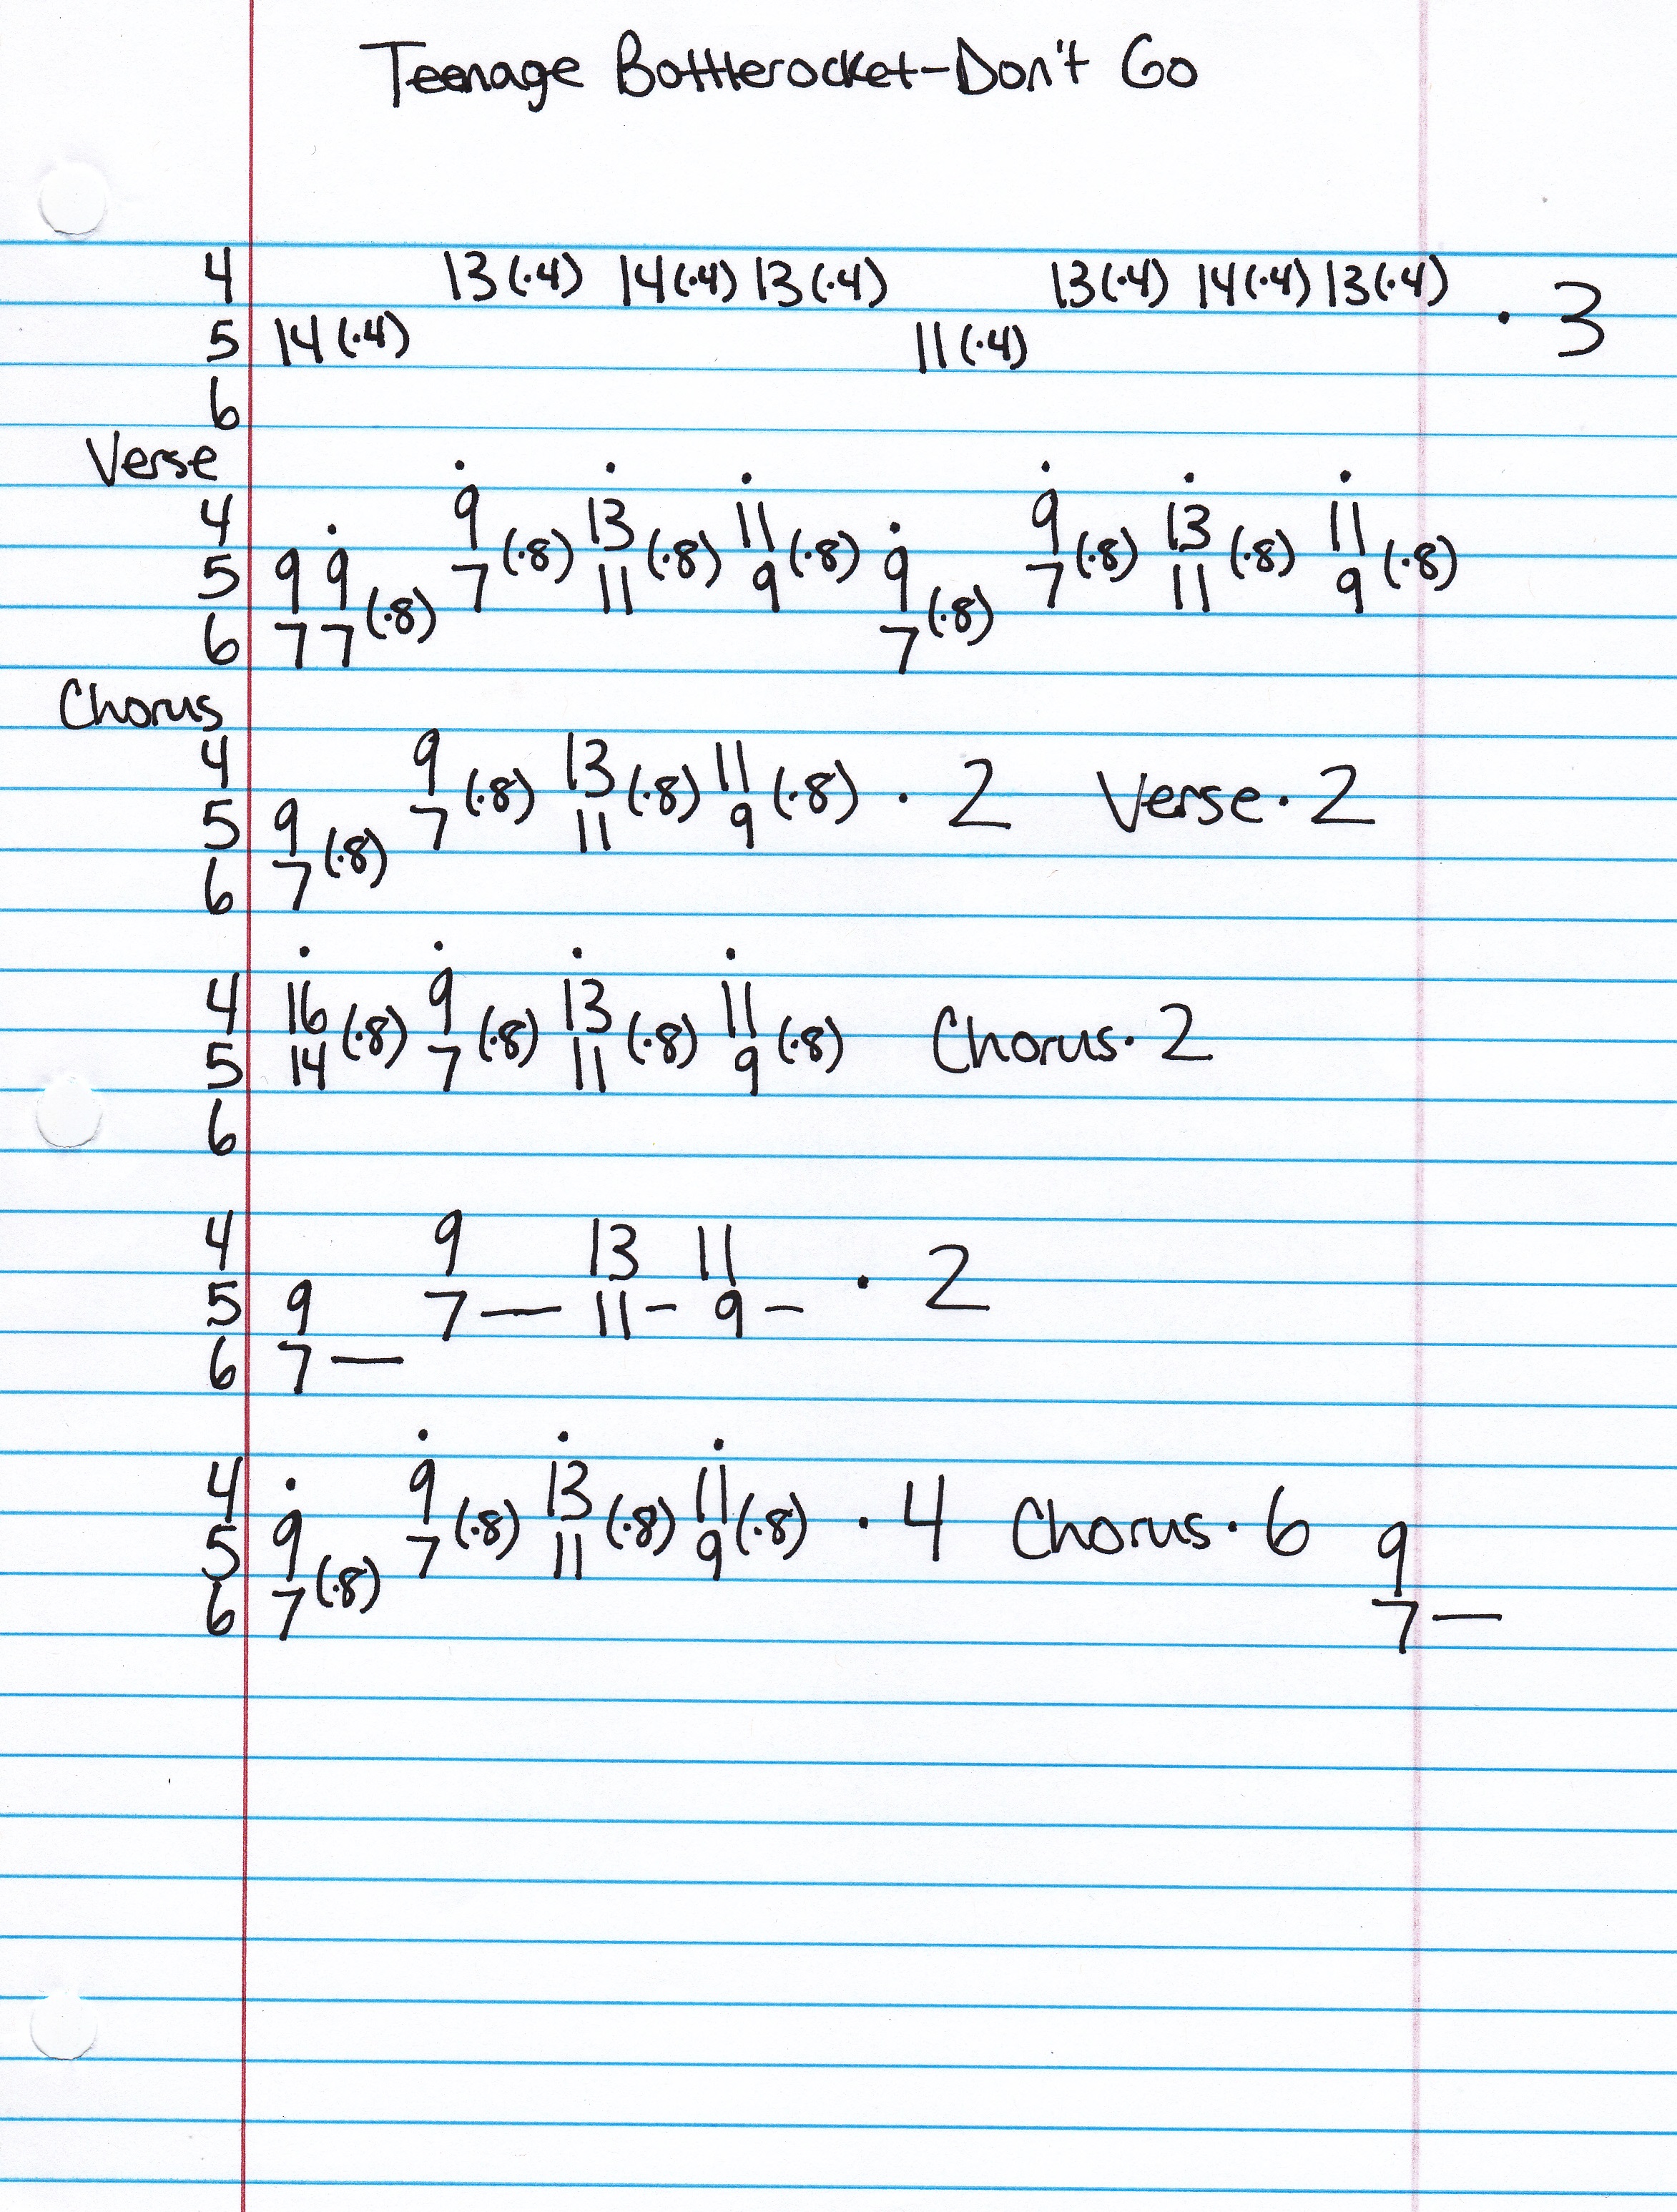 Teenage Bottlerocket-Don't Go
4 13(·4) 14(·4) 13(·4) 13(·4) 14(·4) 13(·4) · 3
5 14(·4) 11(·4)
6
Verse
4 9(·8) 13(·8) 11(·8) 9(·8) 13(·8) 11(·8)
5 9 9(·8) 7 11 9 9(·8) 7 11 9
6 7 7 7
Chorus
4 9(·8) 13(·8) 11(·8) · 2 Verse · 2
5 9(·8) 7 11 9
6 7
4 16(·8) 9(·8) 13(·8) 11(·8) Chorus · 2
5 14 7 11 9
6
4 9 13 11 · 2
5 9 7— 11– 9–
6 7—
4 9(·8) 13(·8) 11(·8) · 4 Chorus · 6
5 9(·8) 7 11 9 9
6 7 7—